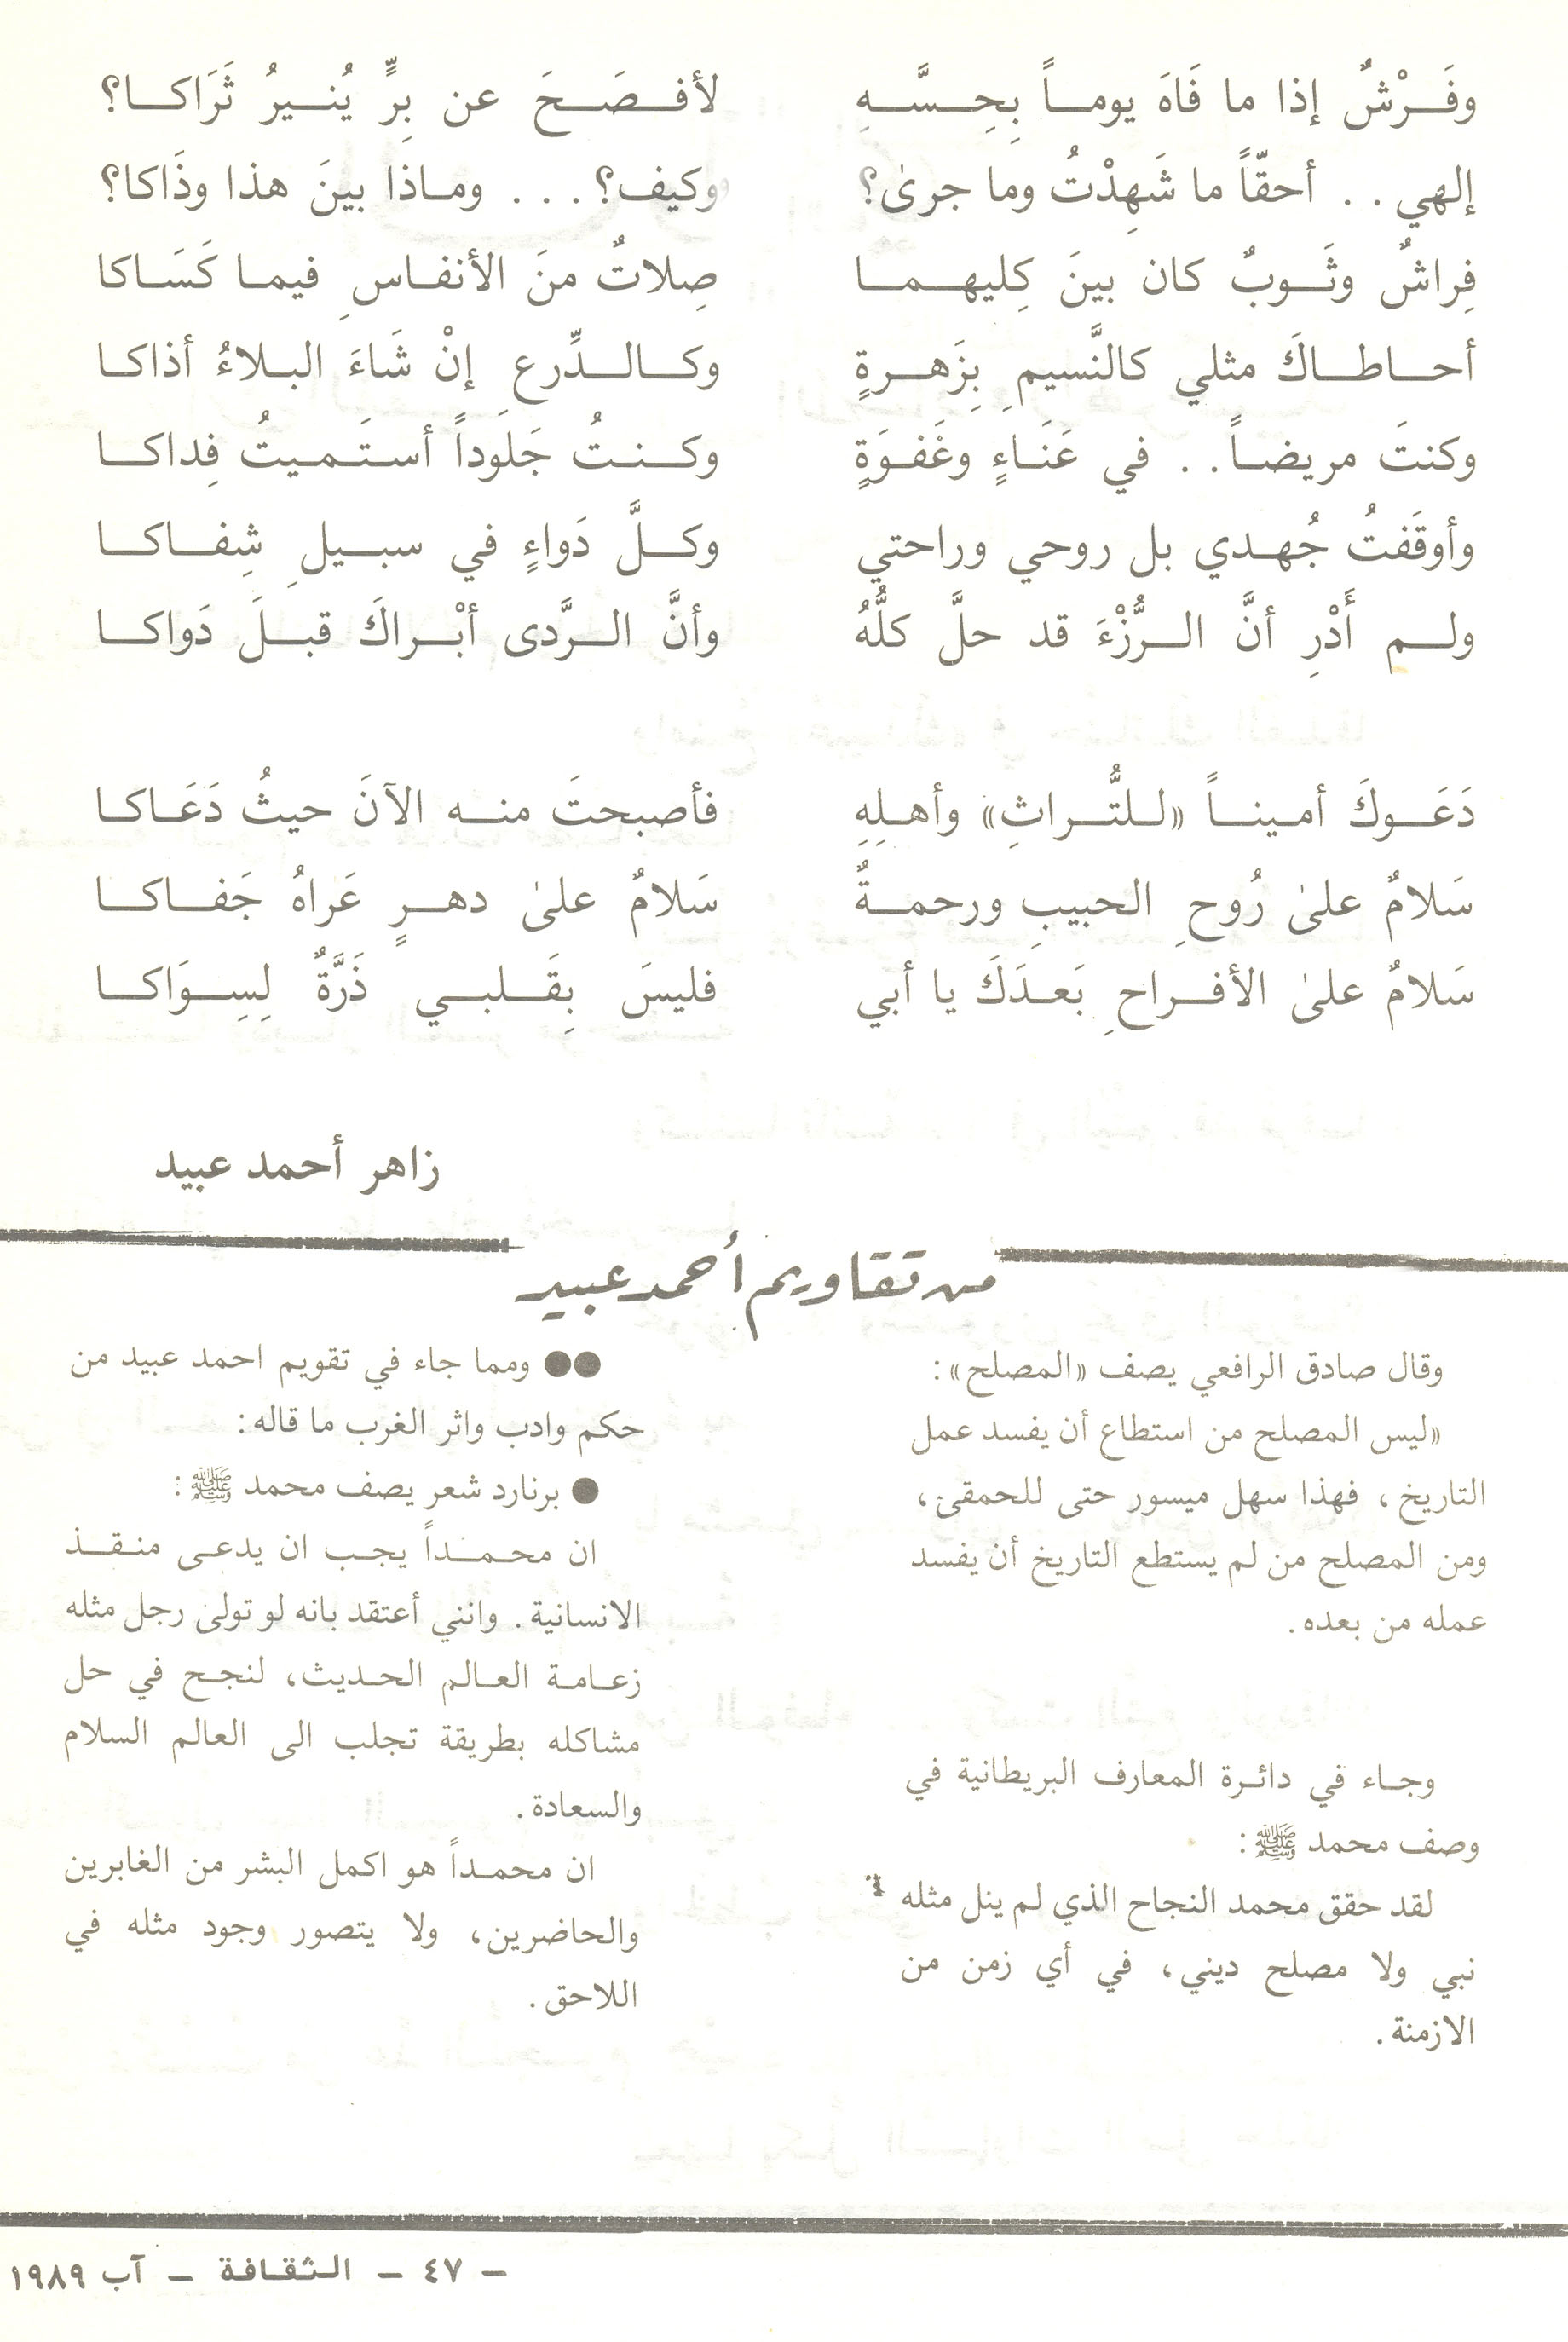 وفَرْشٌ إذا ما فَاهَ يوماً بِحِسَّهِ لأفصَحَ عن بِرٍّ يُنيرُ ثَرَاكا؟
إلهي . . أحقّاً ما شَهِدْتُ وما جرىٰ؟ وكيف؟ . . . وماذا بينَ هذا وذَاكا؟
فِراشٌ وثَوبٌ كان بينَ كِليهما صِلاتٌ منَ الأنفاسِ فيما كَسَاكا
أحاطاكَ مثلي كالنَّسيمِ بِزَهرةٍ وكالدِّرعِ إنْ شَاءَ البلاءُ أذاكا
وكنتَ مريضاً . . في عَنَاءٍ وغَفوَةٍ وكنتُ جَلَوداً أستَميتُ فِداكا
وأوقَفتُ جُهدي بل روحي وراحتي وكلَّ دَواءٍ في سبيلِ شِفاكا
ولم أَدْرِ أنَّ الرُّزْءَ قد حلَّ كلُّهُ وأنَّ الرَّدى أبْراكَ قبلَ دَواكا
دَعَوكَ أميناً «للتُّراثِ» وأهلِهِ فأصبحتَ منه الآنَ حيثُ دَعَاكا
سَلامٌ علىٰ رُوحِ الحبيبِ ورحمةٌ سَلامٌ علىٰ دهرٍ عَراهُ جَفاكا
سَلامٌ علىٰ الأفراحِ بَعدَكَ يا أبي فليسَ بِقَلبي ذَرَّةٌ لِسِوَاكا
زاهر أحمد عبيد
من تقاويم أحمد عبيد
وقال صادق الرافعي يصف «المصلح»:
«ليس المصلح من استطاع أن يفسد عمل
التاريخ، فهذا سهل ميسور حتى للحمقىٰ،
ومن المصلح من لم يستطع التاريخ أن يفسد
عمله من بعده.
وجاء في دائرة المعارف البريطانية في
وصف محمد ﷺ:
لقد حقق محمد النجاح الذي لم ينل مثله
نبي ولا مصلح ديني، في أي زمن من
الازمنة.
●● ومما جاء في تقويم احمد عبيد من
حكم وادب واثر الغرب ما قاله:
● برنارد شعر يصف محمد ﷺ:
ان محمداً يجب ان يدعى منقذ
الانسانية. وانني أعتقد بانه لو تولىٰ رجل مثله
زعامة العالم الحديث، لنجح في حل
مشاكله بطريقة تجلب الى العالم السلام
والسعادة.
ان محمداً هو اكمل البشر من الغابرين
والحاضرين، ولا يتصور وجود مثله في
اللاحق.
– ٤٧ – الثقافة – آب ١٩٨٩